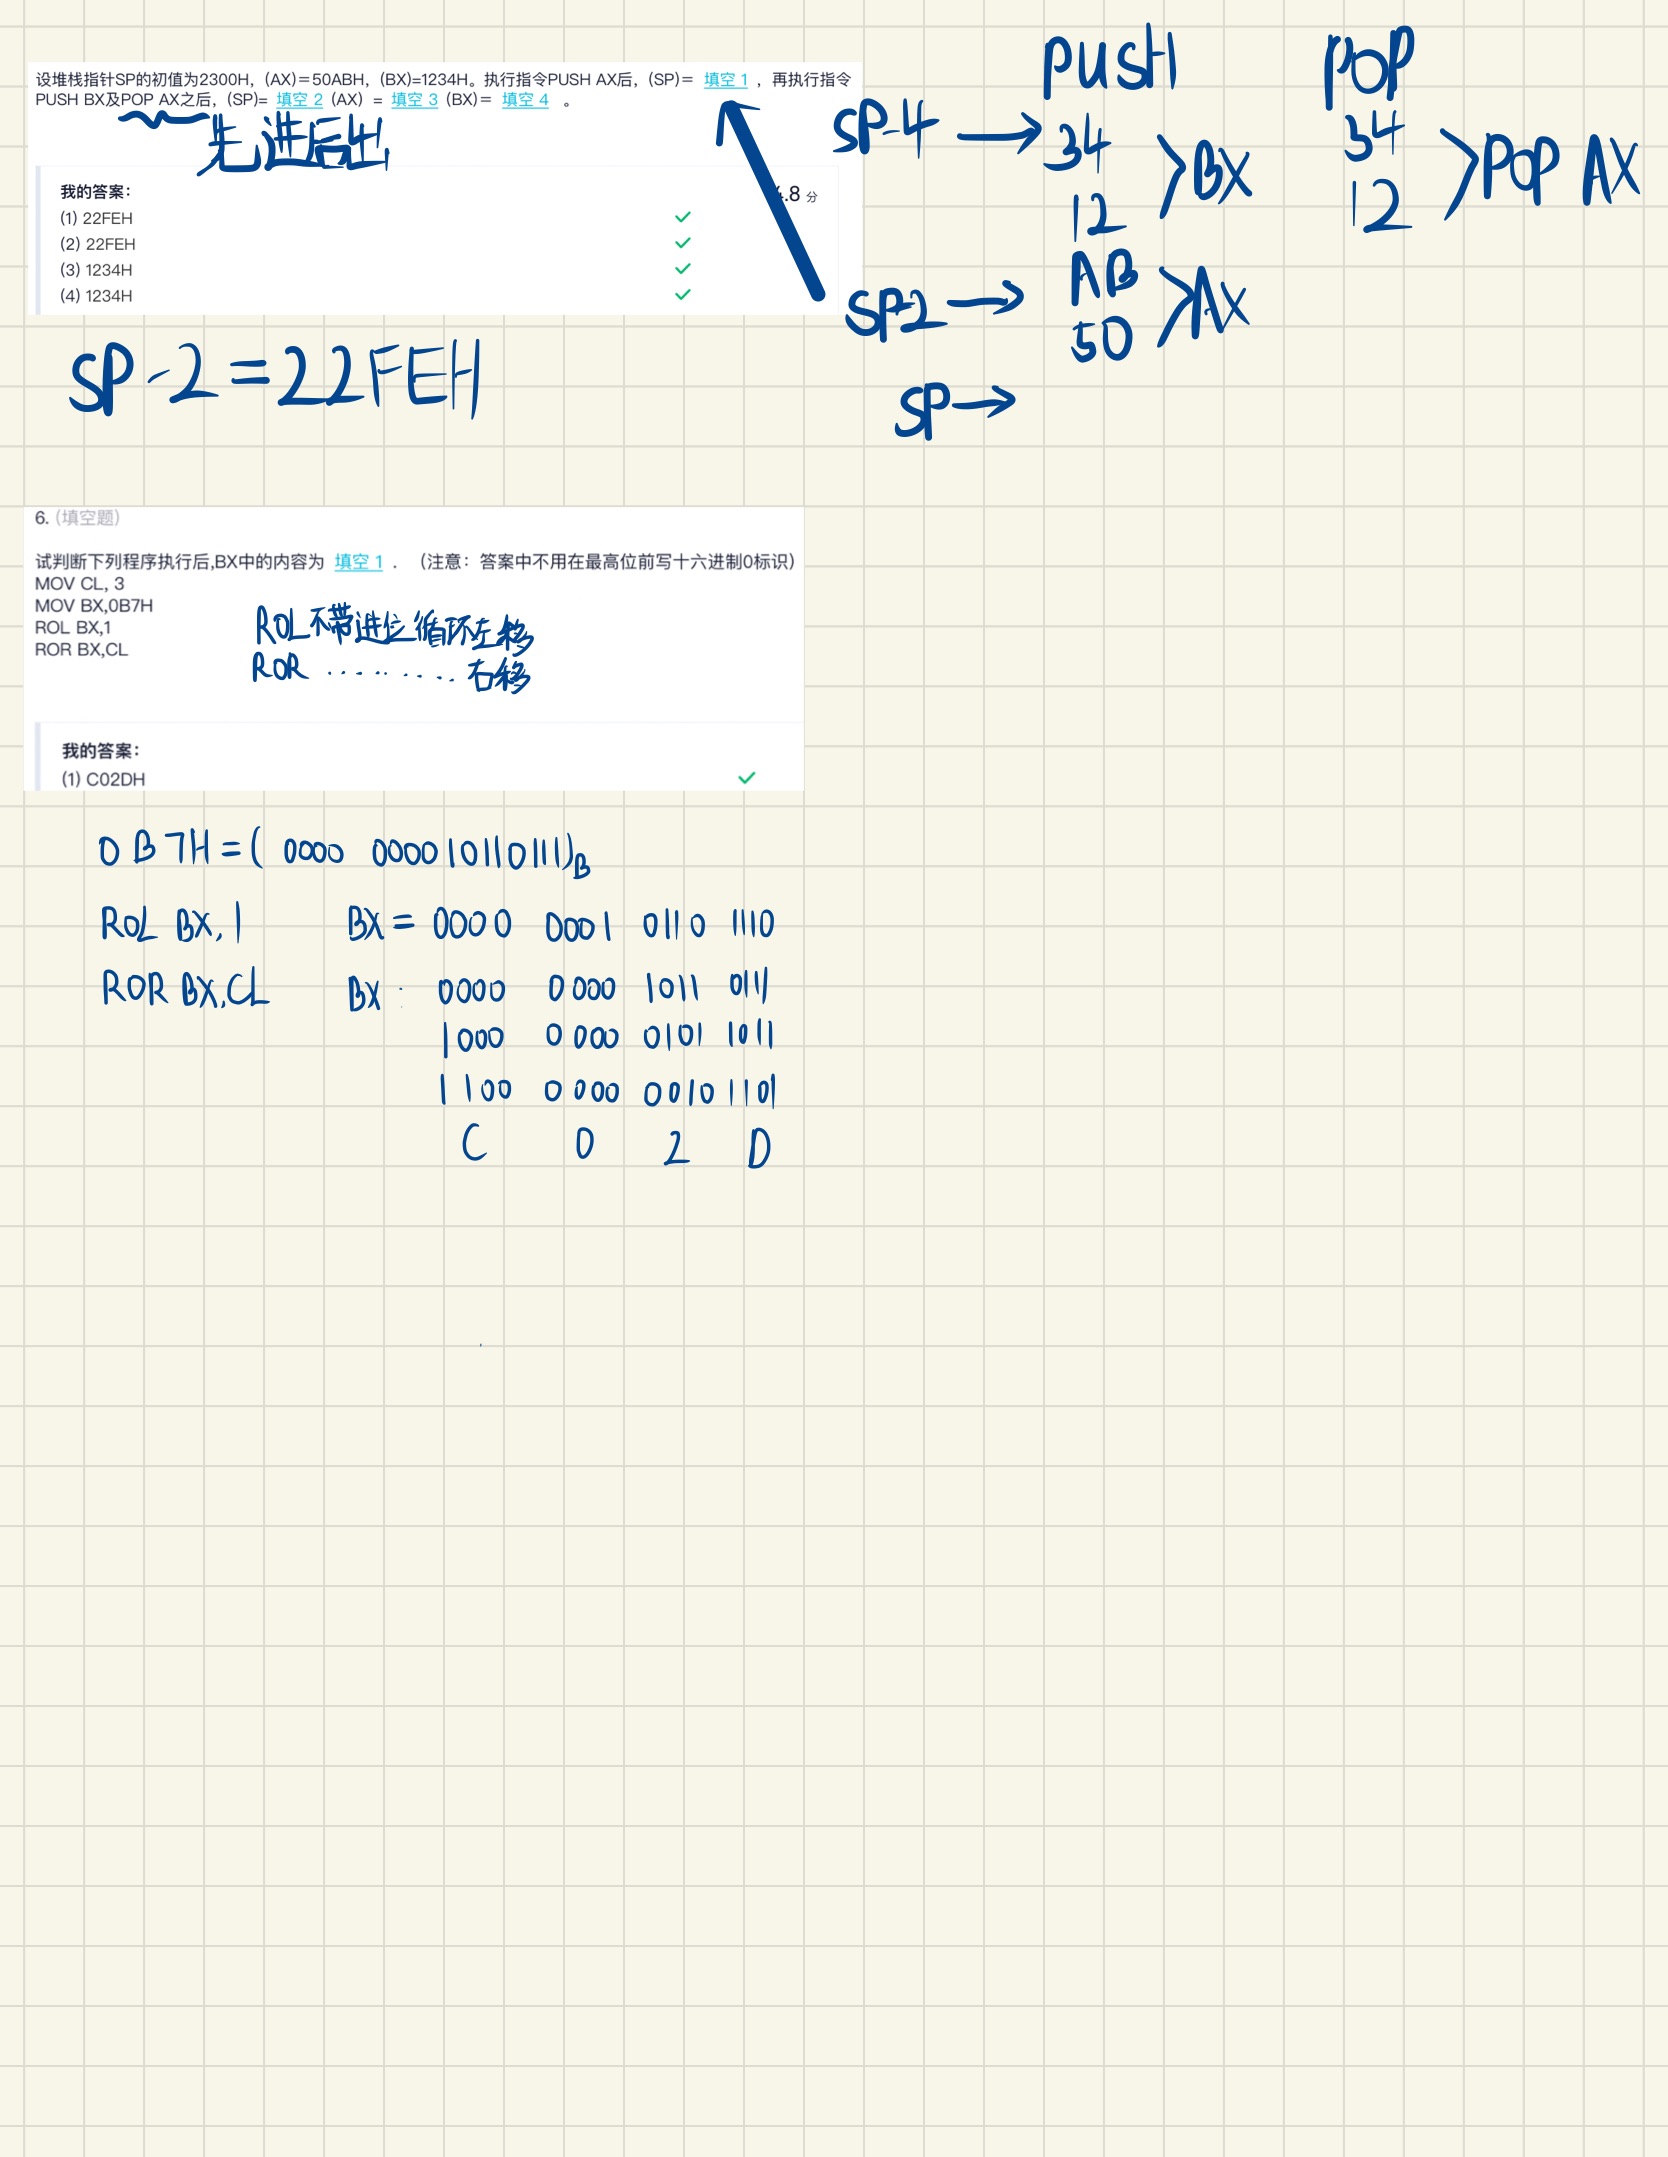 设堆栈指针SP的初值为2300H，(AX)＝50ABH，(BX)=1234H。执行指令PUSH AX后，(SP)＝ 填空 1 ，再执行指令
PUSH BX及POP AX之后，(SP)= 填空 2 (AX) = 填空 3 (BX)＝ 填空 4 。
先进后出
我的答案：
4.8 分
(1) 22FEH
(2) 22FEH
(3) 1234H
(4) 1234H
SP-2=22FEH
PUSH
POP
SP-4 → 34
12 >BX
34
12 >POP AX
SP-2 → AB
50 >AX
SP→
6. (填空题)
试判断下列程序执行后,BX中的内容为 填空 1 ．（注意：答案中不用在最高位前写十六进制0标识）
MOV CL, 3
MOV BX,0B7H
ROL BX,1
ROR BX,CL
ROL不带进位循环左移
ROR ......... 右移
我的答案：
(1) C02DH
0B7H=( 0000 000010110111)B
ROL BX,1 BX= 0000 0001 0110 1110
ROR BX,CL BX: 0000 0000 1011 0111
1000 0000 0101 1011
1100 0000 0010 1101
C 0 2 D